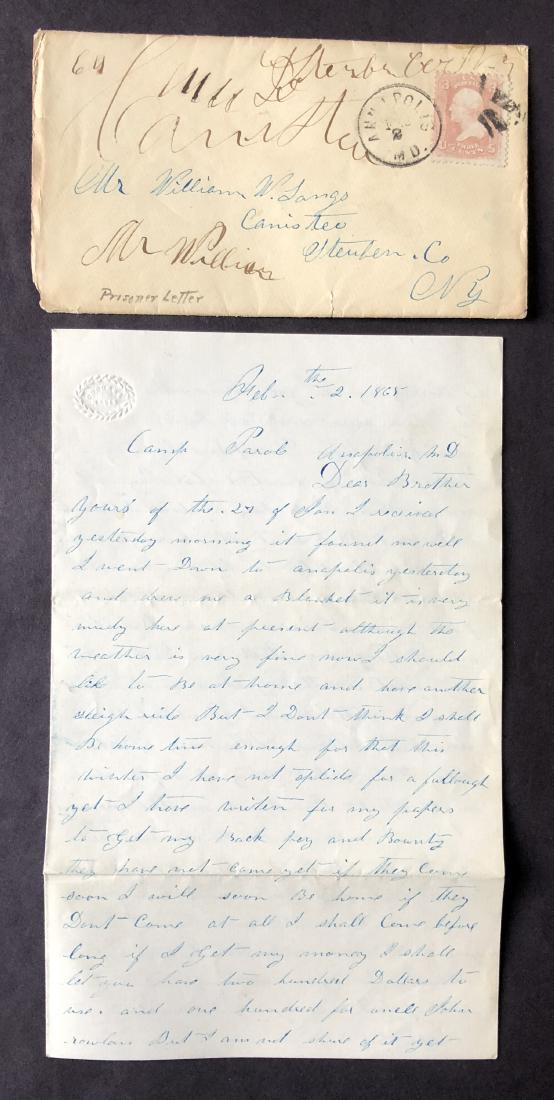 64
Steuben Co N.y
Canisteo
ANNAPOLIS
2
MD.
3 3
CENTS
Mr William W. Sango
Canisteo
Steuben. Co
Ny
Mr William
Prisoner Letter
Febr the 2. 1865
Camp Parole Anapolis M D
Dear Brother
yours of the. 27 of Jan I received
yesterday morning it found me well
I went Down to anapolis yesterday
and drew me a Blanket it is very
mudy here at present although the
weather is very fine now I should
like to Be at home and have another
sleigh ride But I Dont think I shall
Be home time enough for that this
winter I have not aplide for a fullough
yet I have writen for my papers
to Get my Back pay and Bounty
they have not came yet if they Come
soon I will soon Be home if they
Dont Come at all I shall Come before
long if I Get my money I shall
let you have two hundred Dollars to
use. and one hundred for uncle John
rowlau But I am not shure of it yet